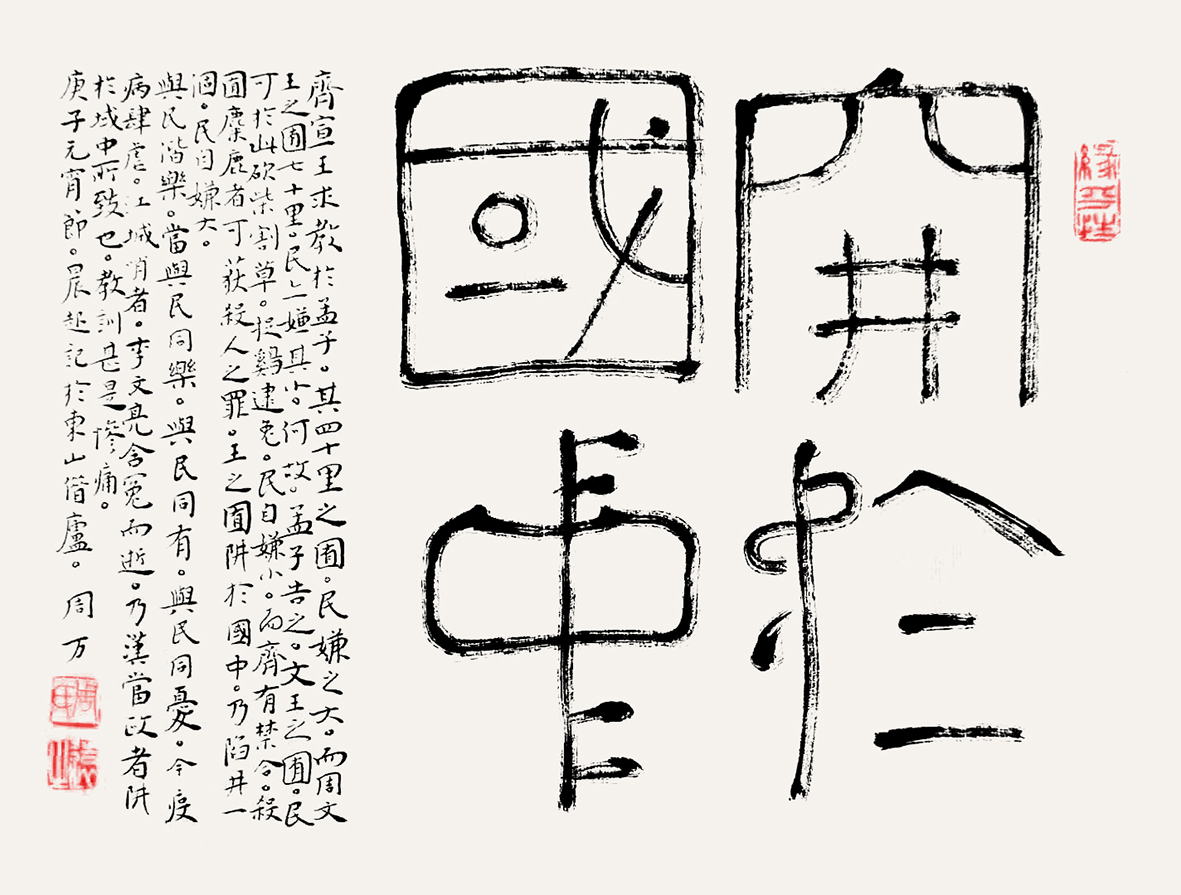 穽於
國中
齊宣王求教於孟子。其四十里之囿。民嫌之大。而周文
王之囿七十里。民嫌其小。何故。孟子告之。文王之囿。民
可於此砍柴割草。捉鷄逮兔。民自嫌小。而齊有禁令。殺
囿麋鹿者可荻殺人之罪。王之囿阱於國中。乃陷井一
個。民自嫌大。
與民偕樂。當與民同樂。與民同有。與民同憂。今疫
病肆虐。江城哨者。李文亮含冤而逝。乃漢當政者阱
於域中所致也。教訓甚是慘痛。
庚子元宵節。晨起記於東山偕廬。周万